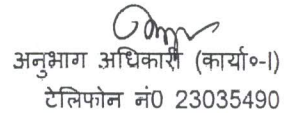 अनुभाग अधिकारी (कार्या०-I)
टेलिफोन नं0 23035490